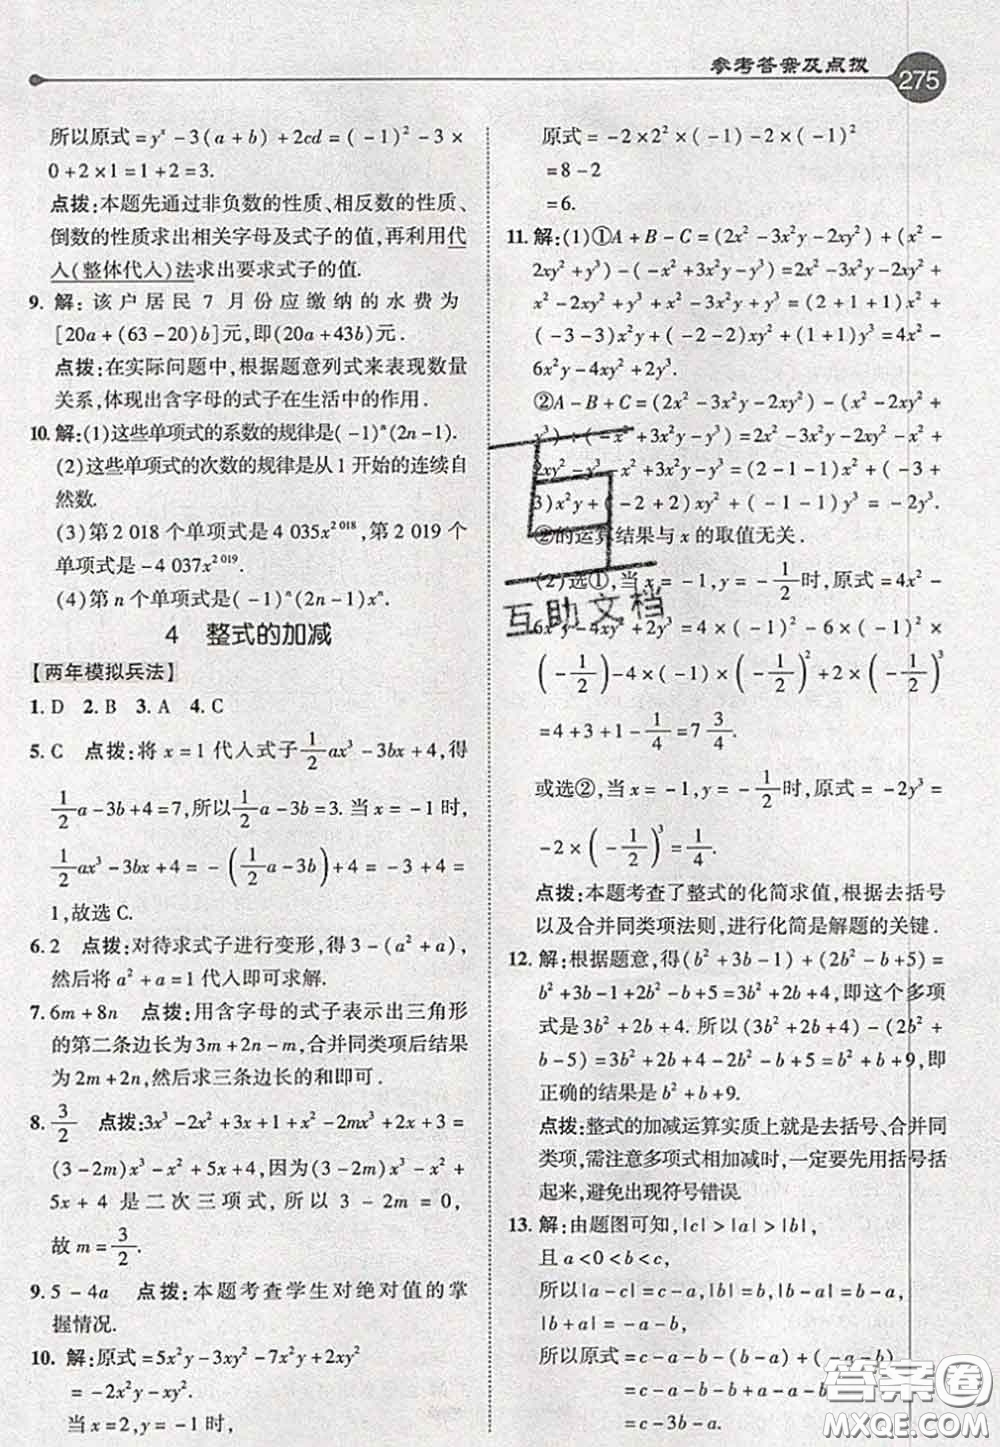 参考答案及点拨 275
所以原式=yˣ-3(a+b)+2cd=(-1)²-3×
0+2×1=1+2=3.
点拨:本题先通过非负数的性质、相反数的性质、
倒数的性质求出相关字母及式子的值,再利用代
入(整体代入)法求出要求式子的值.
9. 解:该户居民7月份应缴纳的水费为
[20a+(63-20)b]元,即(20a+43b)元.
点拨:在实际问题中,根据题意列式来表现数量
关系,体现出含字母的式子在生活中的作用.
10. 解:(1)这些单项式的系数的规律是(-1)ⁿ(2n-1).
(2)这些单项式的次数的规律是从1开始的连续自
然数.
(3)第2 018个单项式是4 035x²⁰¹⁸.第2 019个
单项式是-4 037x²⁰¹⁹.
(4)第n个单项式是(-1)ⁿ(2n-1)xⁿ.
4 整式的加减
【两年模拟兵法】
1. D 2. B 3. A 4. C
5. C 点拨:将x=1代入式子1/2ax³-3bx+4,得
1/2a-3b+4=7,所以1/2a-3b=3.当x=-1时,
1/2ax³-3bx+4=-(1/2a-3b)+4=-3+4=
1,故选C.
6. 2 点拨:对待求式子进行变形,得3-(a²+a),
然后将a²+a=1代入即可求解.
7. 6m+8n 点拨:用含字母的式子表示出三角形
的第二条边长为3m+2n-m,合并同类项后结果
为2m+2n,然后求三条边长的和即可.
8. 3/2 点拨:3x³-2x²+4x+x²-2mx³+2x+3=
(3-2m)x³-x²+5x+4,因为(3-2m)x³-x²+
5x+4是二次三项式,所以3-2m=0,
故m=3/2.
9. 5-4a 点拨:本题考查学生对绝对值的掌
握情况.
10. 解:原式=5x²y-3xy²-7x²y+2xy²
=-2x²y-xy².
当x=2,y=-1时,
原式=-2×2²×(-1)-2×(-1)²
=8-2
=6.
11. 解:(1)①A+B-C=(2x²-3x²y-2xy²)+(x²-
2xy²+y³)-(-x²+3x²y-y³)=2x²-3x²y-2xy²+
x²-2xy²+y³+x²-3x²y+y³=(2+1+1)x²+
(-3-3)x²y+(-2-2)xy²+(1+1)y³=4x²-
6x²y-4xy²+2y³.
②A-B+C=(2x²-3x²y-2xy²)-(x²-2xy²+
y³)+(-x²+3x²y-y³)=2x²-3x²y-2xy²-x²+
2xy²-y³-x²+3x²y-y³=(2-1-1)x²+(-3+
3)x²y+(-2+2)xy²+(-1-1)y³=-2y³.
②的运算结果与x的取值无关.
(2)选①,当x=-1,y=-1/2时,原式=4x²-
6x²y-4xy²+2y³=4×(-1)²-6×(-1)²×
(-1/2)-4×(-1)×(-1/2)²+2×(-1/2)³
=4+3+1-1/4=7 3/4.
或选②,当x=-1,y=-1/2时,原式=-2y³=
-2×(-1/2)³=1/4.
点拨:本题考查了整式的化简求值,根据去括号
以及合并同类项法则,进行化简是解题的关键.
12. 解:根据题意,得(b²+3b-1)+(2b²-b+5)=
b²+3b-1+2b²-b+5=3b²+2b+4,即这个多项
式是3b²+2b+4.所以(3b²+2b+4)-(2b²+
b-5)=3b²+2b+4-2b²-b+5=b²+b+9,即
正确的结果是b²+b+9.
点拨:整式的加减运算实质上就是去括号、合并同
类项,需注意多项式相加减时,一定要先用括号括
起来,避免出现符号错误.
13. 解:由题图可知,|c|>|a|>|b|,
且a<0<b<c,
所以|a-c|=c-a,|b|=b,|b-a|=b-a,
|b+a|=-a-b,
所以原式=c-a-b-(b-a)+(-a-b)
=c-a-b-b+a-a-b
=c-3b-a.
互助文档
答案圈
MXQE.COM